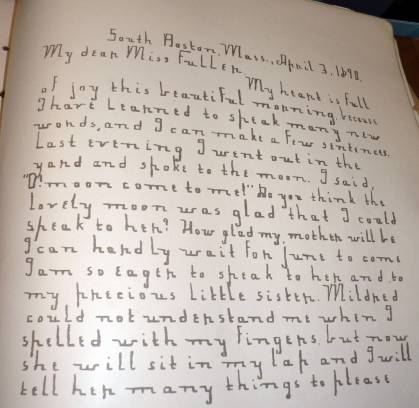 South Boston, Mass., April 3, 1890.
My dear Miss Fuller,
My heart is full
of joy this beautiful morning, because
I have learned to speak many new
words, and I can make a few sentences.
Last evening I went out in the
yard and spoke to the moon. I said,
"O! moon come to me!" Do you think the
lovely moon was glad that I could
speak to her? How glad my mother will be
I can hardly wait for June to come
I am so eager to speak to her and to
my precious little sister. Mildred
could not understand me when I
spelled with my fingers, but now
she will sit in my lap and I will
tell her many things to please